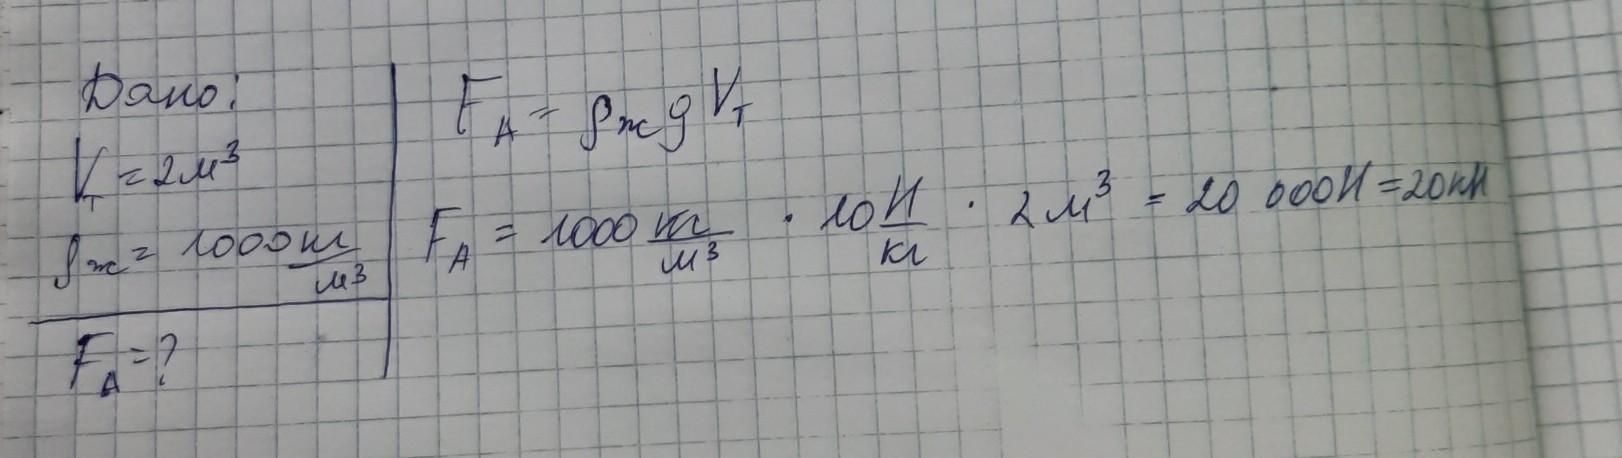 Дано:
V_т = 2м³
ρ_ж = 1000 кг/м³
F_A = ?
F_A = ρ_ж g V_т
F_A = 1000 кг/м³ · 10 Н/кг · 2 м³ = 20 000Н = 20кН